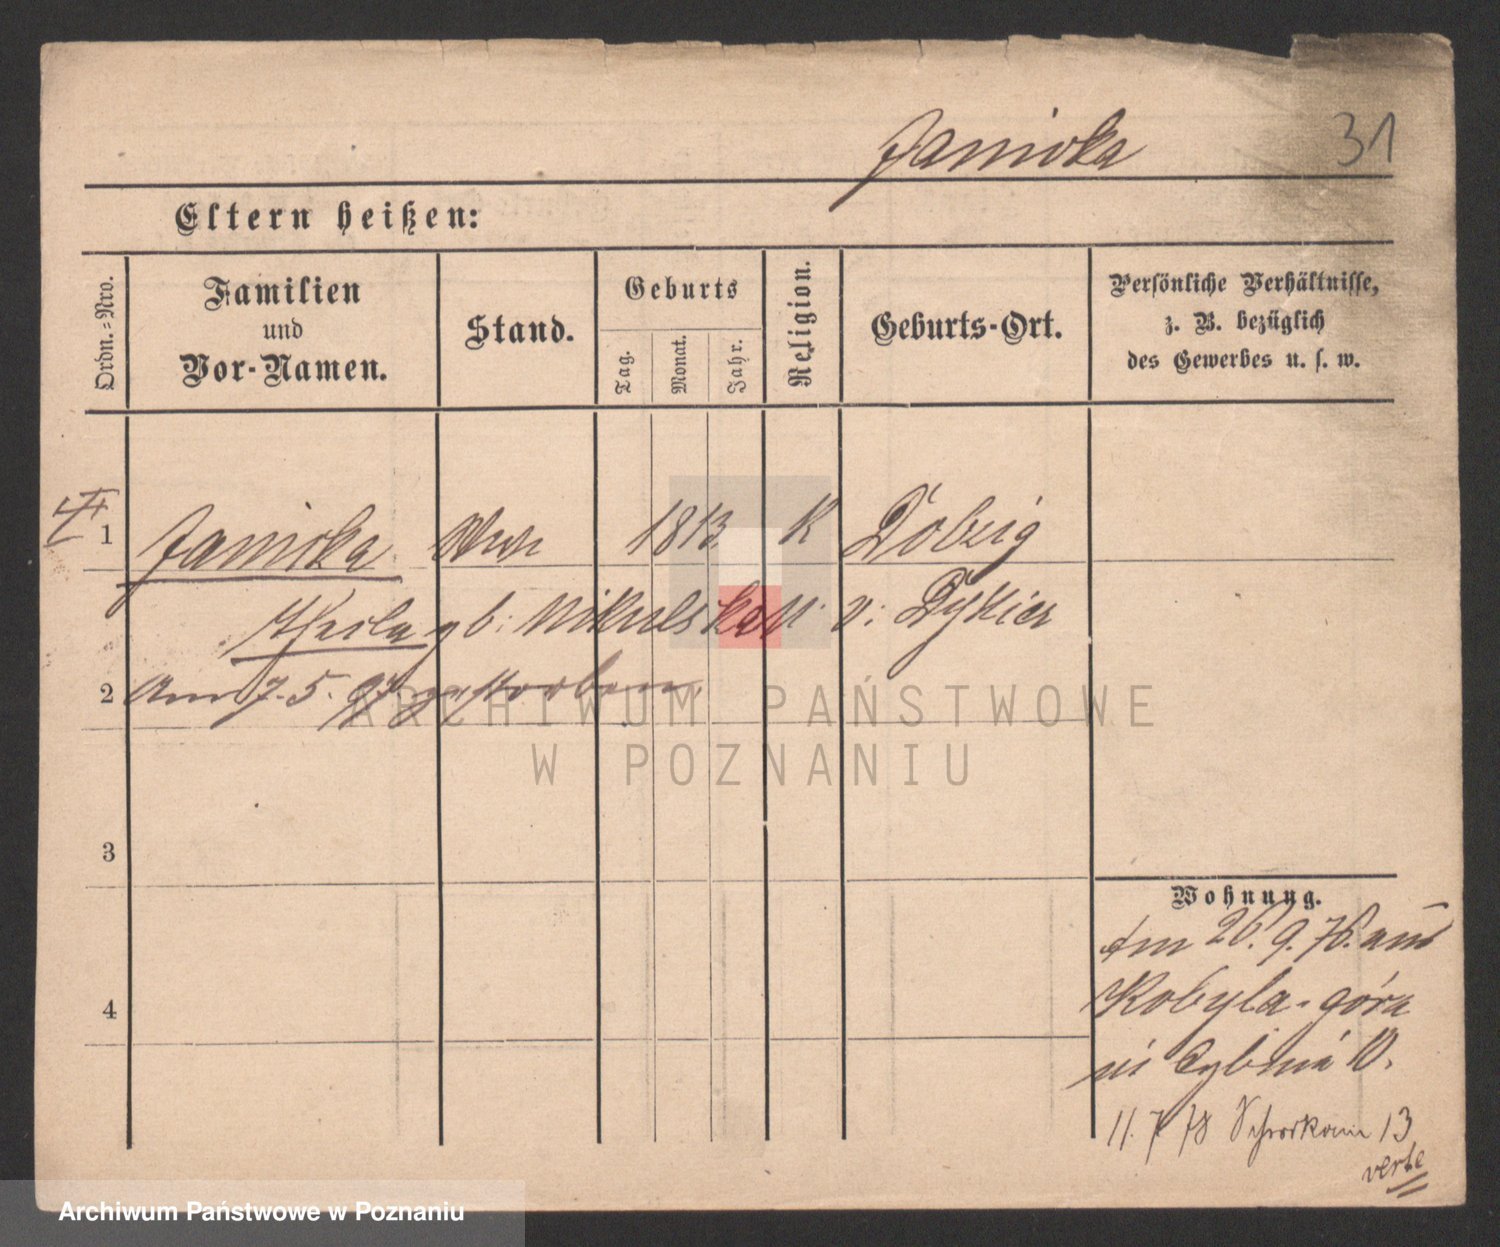 Janicka 31
Eltern heißen:
Ordn.=Nro.
Familien
und
Vor-Namen.
Stand.
Geburts
Tag.
Monat.
Jahr.
Religion.
Geburts-Ort.
Persönliche Verhältnisse,
z. B. bezüglich
des Gewerbes u. s. w.
1 Janicka Wwe 1813 K Dobzig
gb: Nikulska
2 Am 7. 5. 97 gestorben
3
4
Wohnung.
Am 26. 9. 76. aus
Kobyla-góra
Cybina 10.
11. 7 78 Schrodkaerm 13
verte
ARCHIWUM PAŃSTWOWE
W POZNANIU
Archiwum Państwowe w Poznaniu